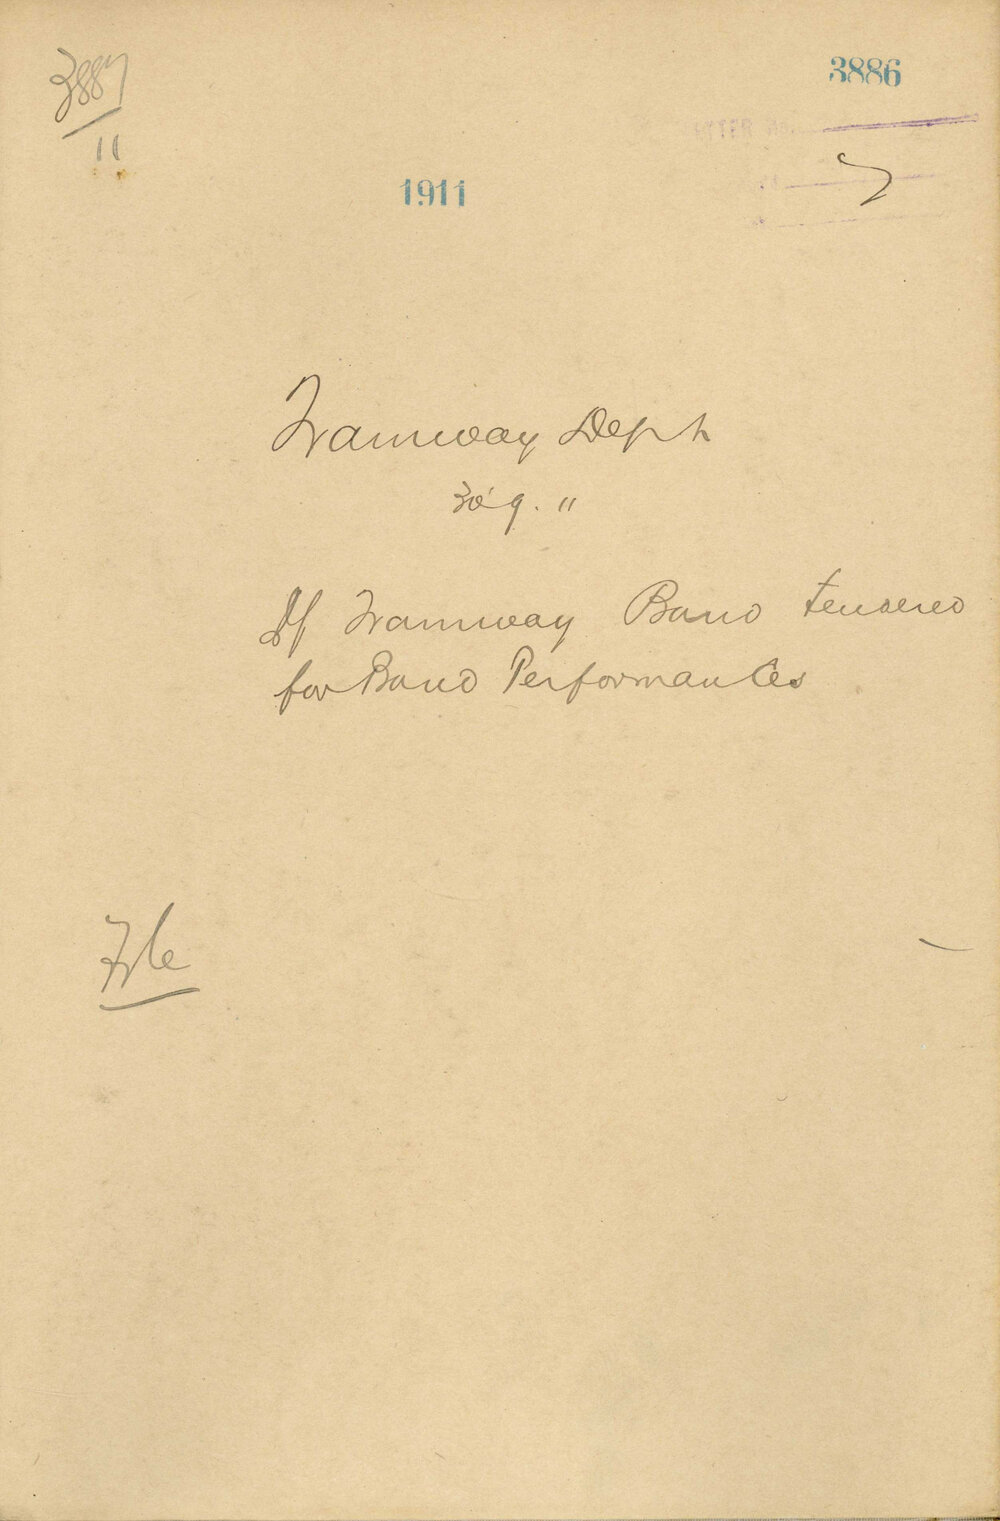 3887
11
3886
1911
Tramway Dept
30.9.11
If Tramway Band tendered
for Band Performances
File